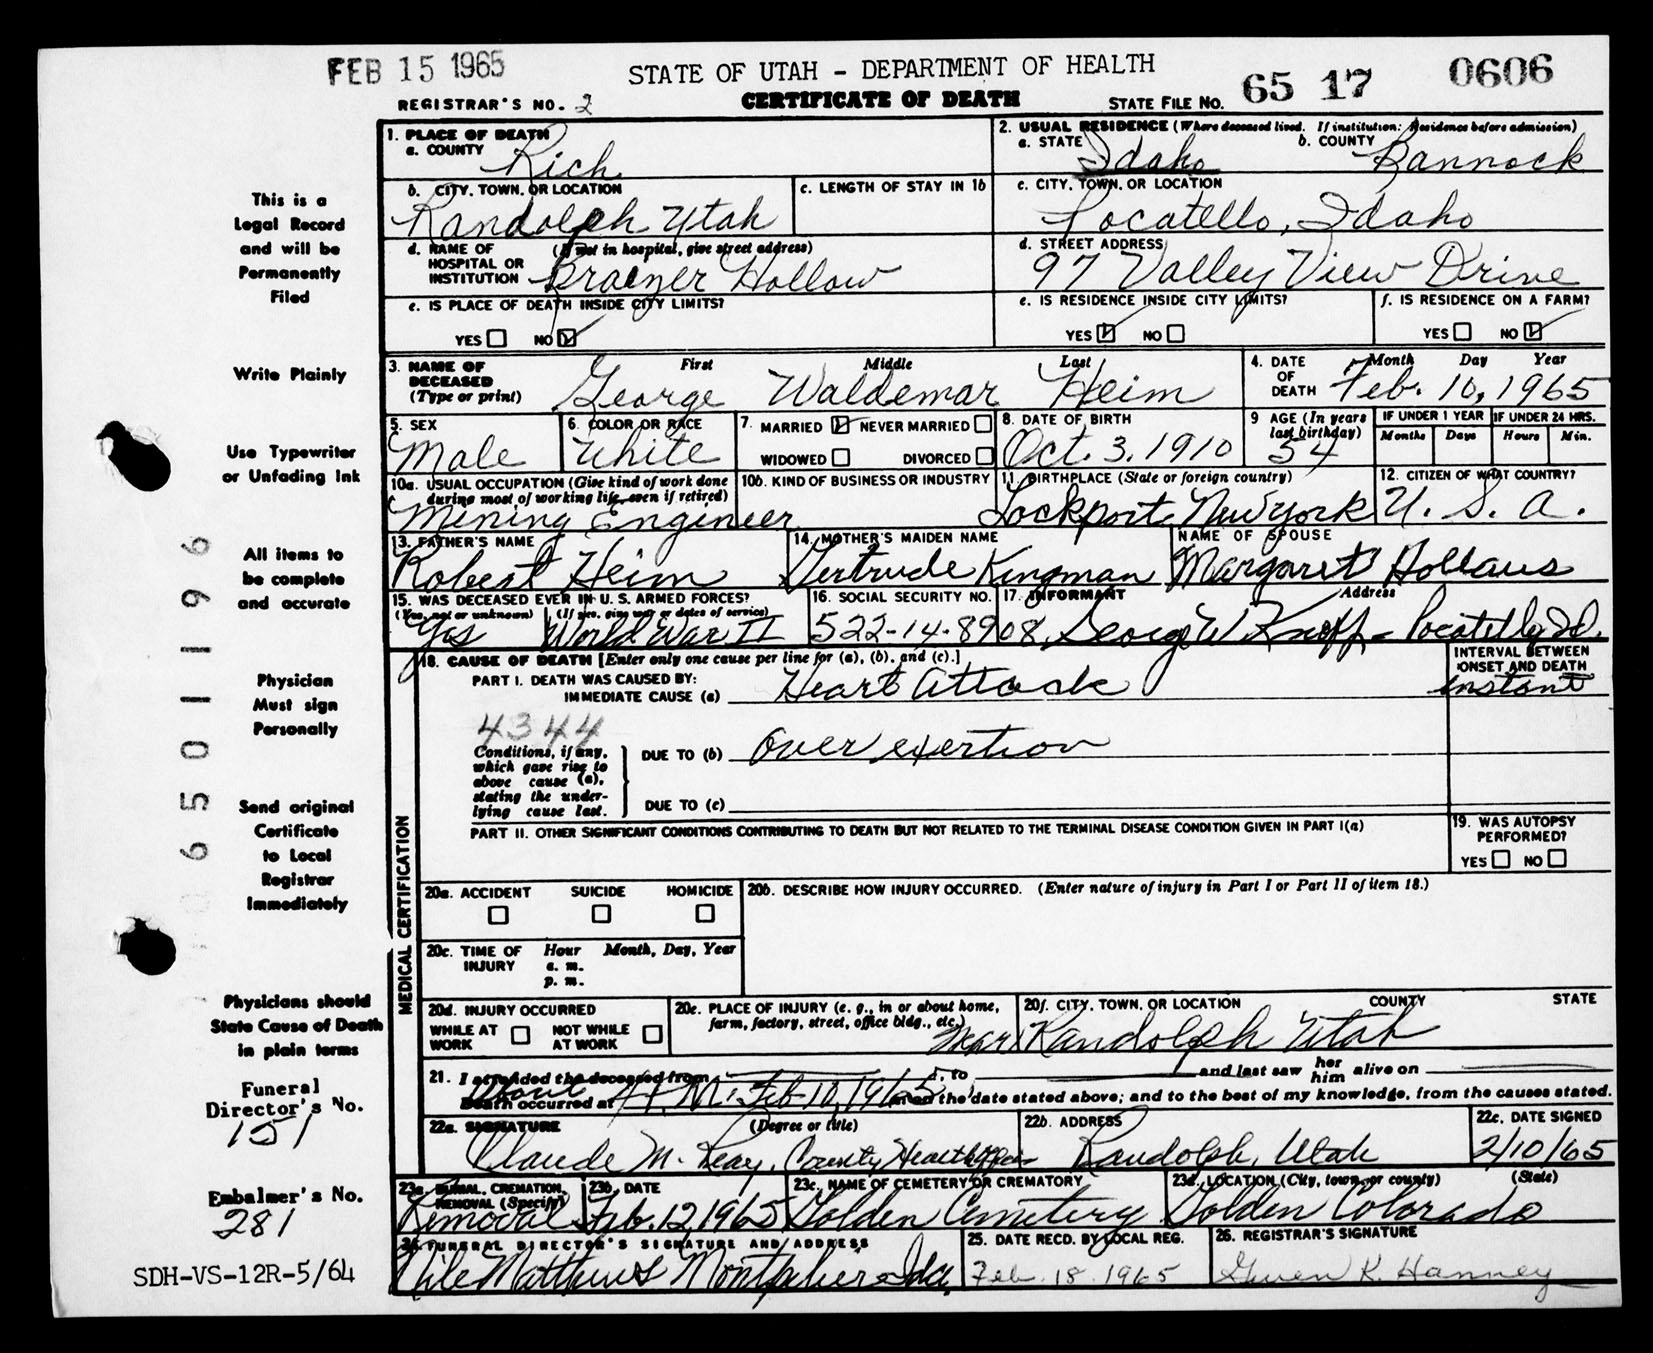 FEB 15 1965
STATE OF UTAH - DEPARTMENT OF HEALTH
65 17 0606
REGISTRAR'S NO. 2
CERTIFICATE OF DEATH
STATE FILE NO.
1. PLACE OF DEATH
a. COUNTY Rich
2. USUAL RESIDENCE (Where deceased lived. If institution: Residence before admission)
a. STATE Idaho b. COUNTY Bannock
b. CITY, TOWN, OR LOCATION
Randolph Utah
c. LENGTH OF STAY IN 1b
c. CITY, TOWN, OR LOCATION
Pocatello, Idaho
d. NAME OF HOSPITAL OR INSTITUTION (If not in hospital, give street address)
Hollow
d. STREET ADDRESS
97 Valley View Drive
e. IS PLACE OF DEATH INSIDE CITY LIMITS?
YES NO
e. IS RESIDENCE INSIDE CITY LIMITS?
YES NO
f. IS RESIDENCE ON A FARM?
YES NO
3. NAME OF DECEASED (Type or print)
First Middle Last
George Waldemar Heim
4. DATE OF DEATH Month Day Year
Feb. 10, 1965
5. SEX
Male
6. COLOR OR RACE
White
7. MARRIED NEVER MARRIED
WIDOWED DIVORCED
8. DATE OF BIRTH
Oct. 3. 1910
9 AGE (In years last birthday)
54
IF UNDER 1 YEAR
Months Days
IF UNDER 24 HRS.
Hours Min.
10a. USUAL OCCUPATION (Give kind of work done during most of working life, even if retired)
Mining Engineer
10b. KIND OF BUSINESS OR INDUSTRY
11. BIRTHPLACE (State or foreign country)
Lockport, New York
12. CITIZEN OF WHAT COUNTRY?
U. S. A.
13. FATHER'S NAME
Robert Heim
14. MOTHER'S MAIDEN NAME
Gertrude Kingman
NAME OF SPOUSE
Margaret Hollaus
15. WAS DECEASED EVER IN U. S. ARMED FORCES?
(Yes, no, or unknown) (If yes, give war or dates of service)
Yes World War II
16. SOCIAL SECURITY NO.
522-14-8908
17. INFORMANT Address
George W Knoff - Pocatello, Id.
MEDICAL CERTIFICATION
18. CAUSE OF DEATH [Enter only one cause per line for (a), (b), and (c).]
INTERVAL BETWEEN ONSET AND DEATH
PART I. DEATH WAS CAUSED BY:
IMMEDIATE CAUSE (a) Heart Attack instant
4344
Conditions, if any, which gave rise to above cause (a), stating the underlying cause last.
DUE TO (b) Over exertion
DUE TO (c)
PART II. OTHER SIGNIFICANT CONDITIONS CONTRIBUTING TO DEATH BUT NOT RELATED TO THE TERMINAL DISEASE CONDITION GIVEN IN PART I(a)
19. WAS AUTOPSY PERFORMED?
YES NO
20a. ACCIDENT SUICIDE HOMICIDE
20b. DESCRIBE HOW INJURY OCCURRED. (Enter nature of injury in Part I or Part II of item 18.)
20c. TIME OF INJURY Hour Month, Day, Year
a. m.
p. m.
20d. INJURY OCCURRED
WHILE AT WORK NOT WHILE AT WORK
20e. PLACE OF INJURY (e. g., in or about home, farm, factory, street, office bldg., etc.)
20f. CITY, TOWN, OR LOCATION COUNTY STATE
near Randolph Utah
21. I attended the deceased from , to and last saw her him alive on
Death occurred at About M. Feb 10, 1965 on the date stated above; and to the best of my knowledge, from the causes stated.
22a. SIGNATURE (Degree or title)
Claude M. Reay, County Health Officer
22b. ADDRESS
Randolph, Utah
22c. DATE SIGNED
2/10/65
23a. BURIAL, CREMATION, REMOVAL (Specify)
Removal
23b. DATE
Feb. 12, 1965
23c. NAME OF CEMETERY OR CREMATORY
Golden Cemetery
23d. LOCATION (City, town, or county) (State)
Golden Colorado
24. FUNERAL DIRECTOR'S SIGNATURE AND ADDRESS
Nile Matthews Montpelier Ida.
25. DATE RECD. BY LOCAL REG.
Feb. 18. 1965
26. REGISTRAR'S SIGNATURE
Gwen K. Hanney
This is a
Legal Record
and will be
Permanently
Filed
Write Plainly
Use Typewriter
or Unfading Ink
All items to
be complete
and accurate
Physician
Must sign
Personally
Send original
Certificate
to Local
Registrar
Immediately
Physicians should
State Cause of Death
in plain terms
Funeral
Director's No.
151
Embalmer's No.
281
SDH-VS-12R-5/64
6501196